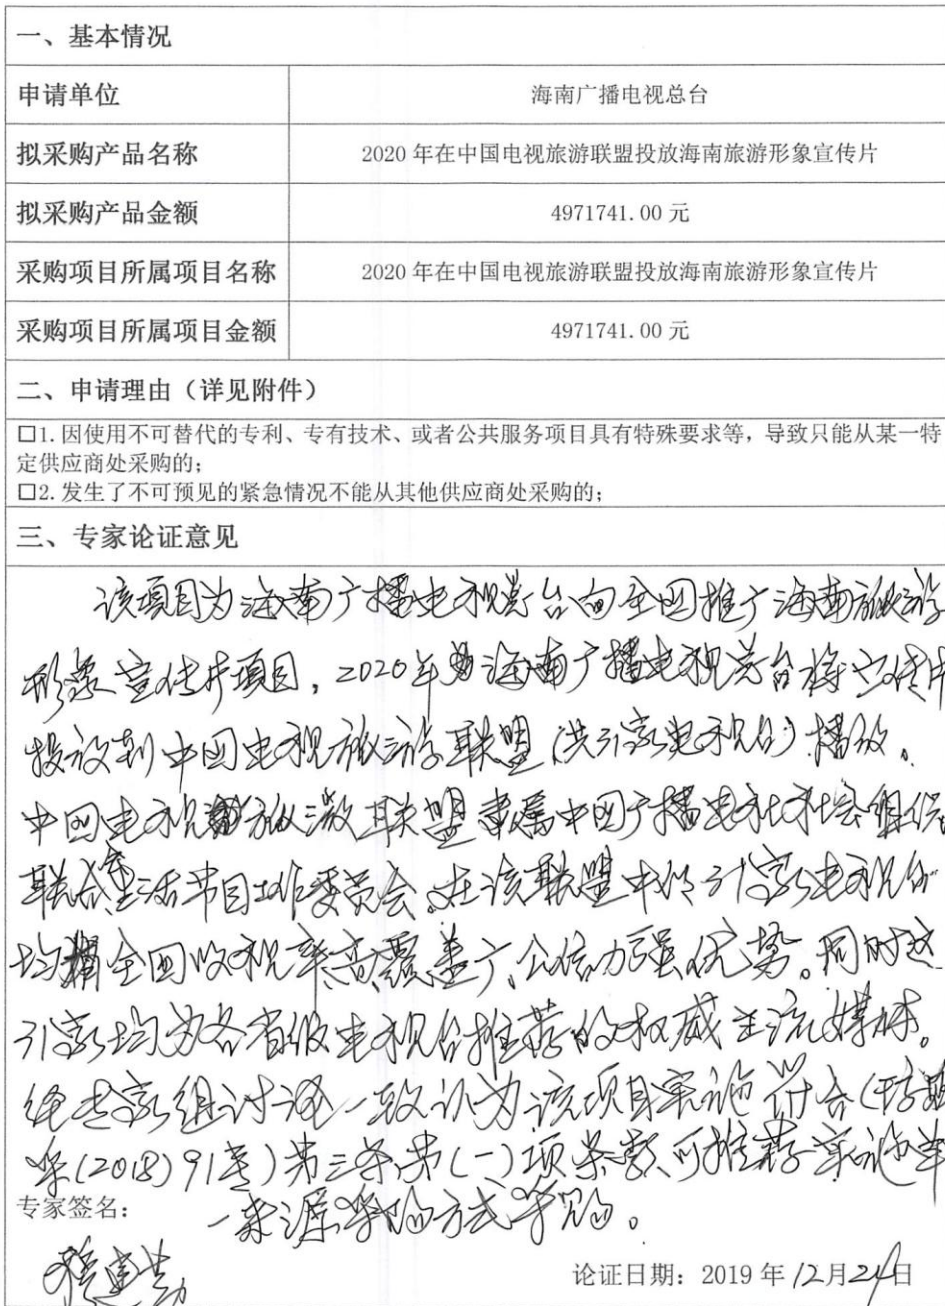 一、基本情况
申请单位 海南广播电视总台
拟采购产品名称 2020 年在中国电视旅游联盟投放海南旅游形象宣传片
拟采购产品金额 4971741.00 元
采购项目所属项目名称 2020 年在中国电视旅游联盟投放海南旅游形象宣传片
采购项目所属项目金额 4971741.00 元
二、申请理由（详见附件）
□1. 因使用不可替代的专利、专有技术、或者公共服务项目具有特殊要求等，导致只能从某一特
定供应商处采购的；
□2. 发生了不可预见的紧急情况不能从其他供应商处采购的；
三、专家论证意见
该项目为海南广播电视总台向全国推广海南旅游
形象宣传片项目，2020年海南广播电视总台将宣传片
投放到中国电视旅游联盟（共31家电视台）播放。
中国电视旅游联盟隶属中国广播电视社会组织
联合会生活节目工作委员会。在该联盟中的31家电视台
均拥全国收视率高、覆盖广、公信力强优势。同时这
31家均为各省级电视台推荐的权威主流媒体。
经专家组讨论一致认为该项目实施符合（琼财
采(2018)91号）第三条第(一)项条款，可推荐实施单
一来源采购方式采购。
专家签名：
论证日期：2019 年 12月24日